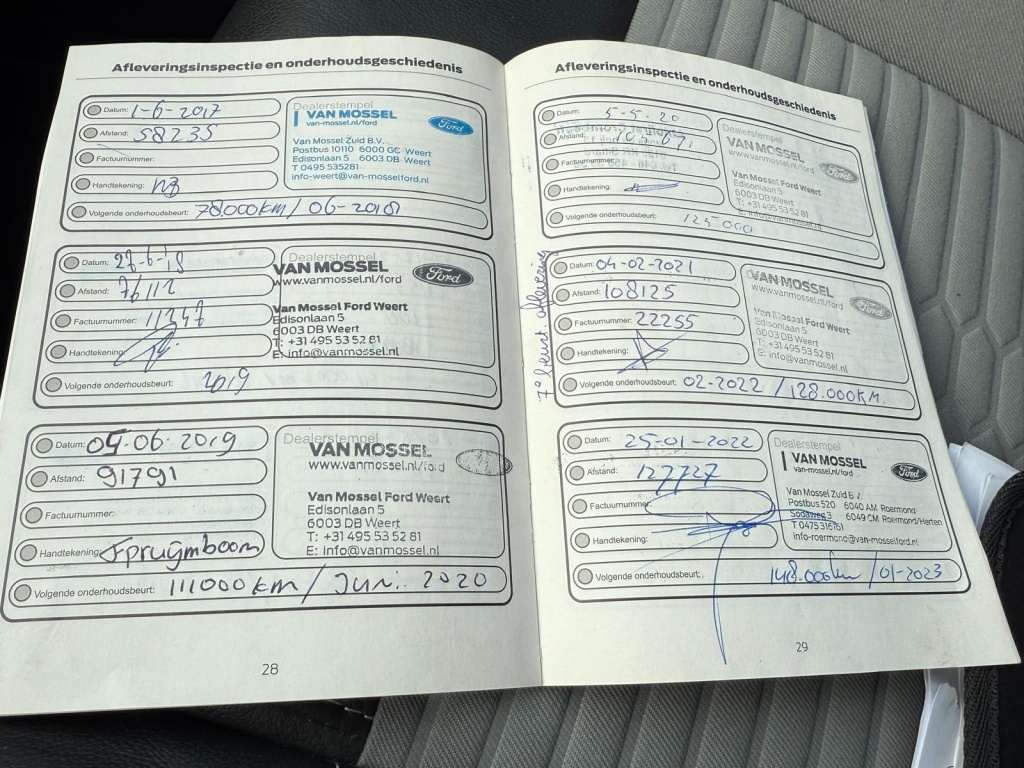 Afleveringsinspectie en onderhoudsgeschiedenis
Datum: 1-6-2017
Afstand: 58235
Factuurnummer:
Handtekening:
Volgende onderhoudsbeurt: 78000km / 06-2018
Dealerstempel
VAN MOSSEL
van-mossel.nl/ford
Ford
Van Mossel Zuid B.V.
Postbus 10110 6000 GC Weert
Edisonlaan 5 6003 DB Weert
T 0495 535281
info-weert@van-mosselford.nl
Datum: 27-6-'18
Afstand: 76112
Factuurnummer: 11347
Handtekening:
Volgende onderhoudsbeurt: 2019
Dealerstempel
VAN MOSSEL
www.vanmossel.nl/ford
Ford
Van Mossel Ford Weert
Edisonlaan 5
6003 DB Weert
T: +31 495 53 52 81
E: info@vanmossel.nl
Datum: 04.06.2019
Afstand: 91791
Factuurnummer:
Handtekening: Spruijmboom
Volgende onderhoudsbeurt: 111000km / Juni 2020
Dealerstempel
VAN MOSSEL
www.vanmossel.nl/ford
Van Mossel Ford Weert
Edisonlaan 5
6003 DB Weert
T: +31 495 53 52 81
E: info@vanmossel.nl
28
Afleveringsinspectie en onderhoudsgeschiedenis
Datum: 5-5-20
Afstand:
Factuurnummer:
Handtekening:
Volgende onderhoudsbeurt: 125000
Dealerstempel
VAN MOSSEL
www.vanmossel.nl/ford
Ford
Van Mossel Ford Weert
Edisonlaan 5
6003 DB Weert
T: +31 495 53 52 81
E: info@vanmossel.nl
7e beurt. aflevering
Datum: 04-02-2021
Afstand: 108125
Factuurnummer: 22255
Handtekening:
Volgende onderhoudsbeurt: 02-2022 / 128.000KM.
VAN MOSSEL
www.vanmossel.nl/ford
Ford
Van Mossel Ford Weert
Edisonlaan 5
6003 DB Weert
T: +31 495 53 52 81
E: info@vanmossel.nl
Datum: 25-01-2022
Afstand: 127727
Factuurnummer:
Handtekening:
Volgende onderhoudsbeurt: 148.000km / 01-2023
Dealerstempel
VAN MOSSEL
van-mossel.nl/ford
Ford
Van Mossel Zuid B.V.
Postbus 520 6040 AM Roermond
Sodaweg 3 6049 CM Roermond/Herten
T 0475 316161
info-roermond@van-mosselford.nl
29